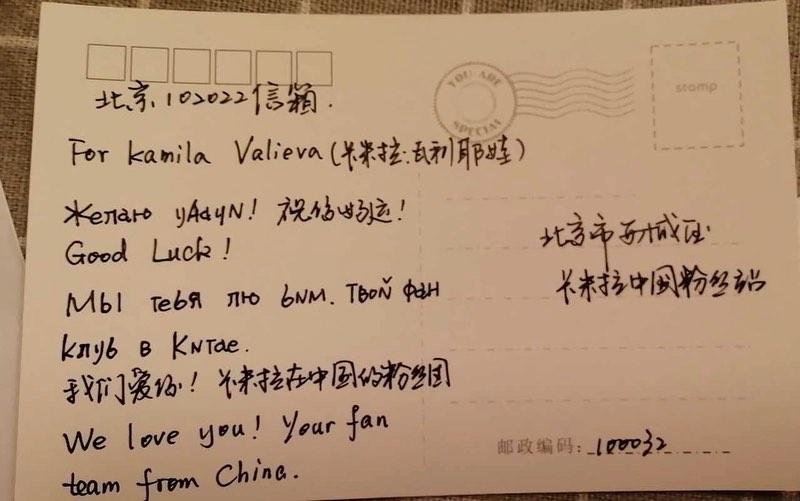 北京102022信箱.
YOU ARE
SPECIAL
stamp
For Kamila Valieva (卡米拉.瓦利耶娃)
Желаю yAayN! 祝你好运!
Good Luck!
北京市西城区
Мы тебя лю bNM. Твой фан
卡米拉中国粉丝站
клуb в KNTae.
我们爱你! 卡米拉在中国的粉丝团
We love you! Your fan
邮政编码: 100032
team from China.